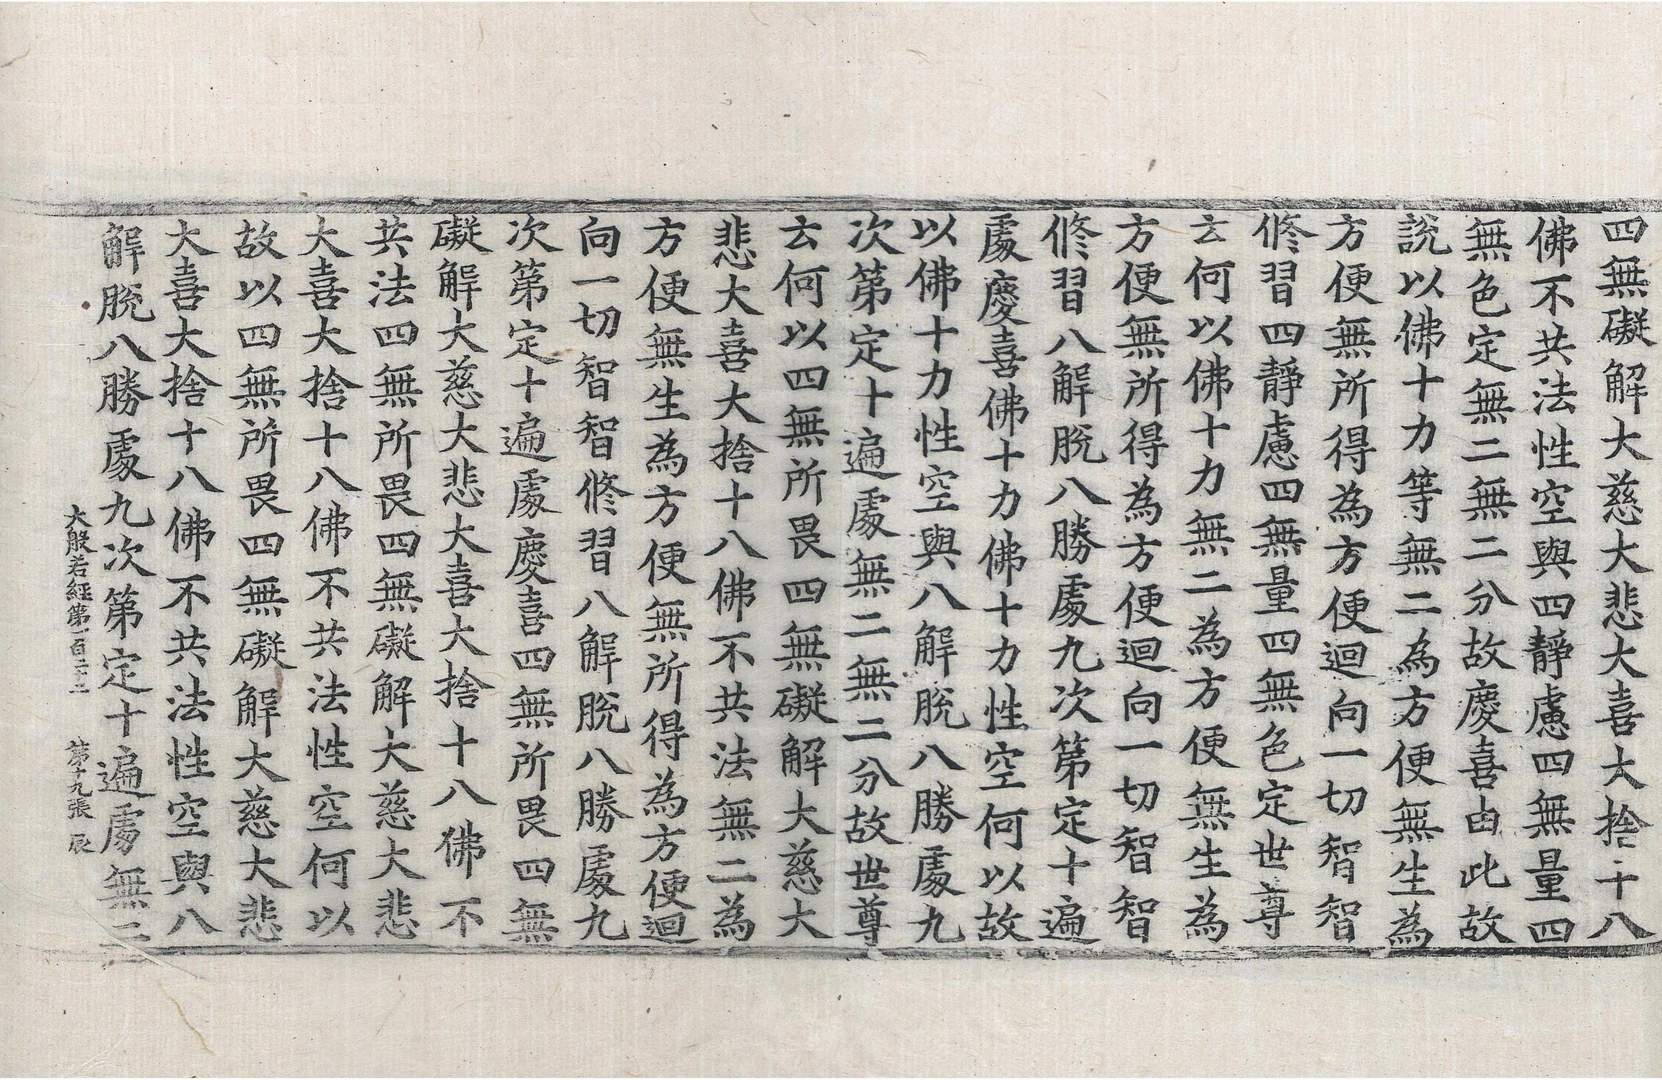 四無礙解大慈大悲大喜大捨十八
佛不共法性空與四靜慮四無量四
無色定無二無二分故慶喜由此故
說以佛十力等無二為方便無生為
方便無所得為方便迴向一切智智
修習四靜慮四無量四無色定世尊
云何以佛十力無二為方便無生為
方便無所得為方便迴向一切智智
修習八解脫八勝處九次第定十遍
處慶喜佛十力佛十力性空何以故
以佛十力性空與八解脫八勝處九
次第定十遍處無二無二分故世尊
云何以四無所畏四無礙解大慈大
悲大喜大捨十八佛不共法無二為
方便無生為方便無所得為方便迴
向一切智智修習八解脫八勝處九
次第定十遍處慶喜四無所畏四無
礙解大慈大悲大喜大捨十八佛不
共法四無所畏四無礙解大慈大悲
大喜大捨十八佛不共法性空何以
故以四無所畏四無礙解大慈大悲
大喜大捨十八佛不共法性空與八
解脫八勝處九次第定十遍處無二
大般若經第一百二十二 第十九張 辰